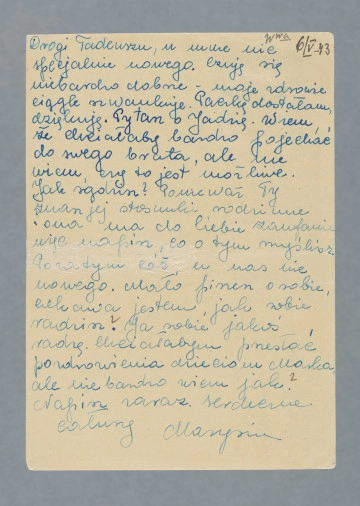 Wwa 6/V-43
Drogi Tadeuszu, u mnie nic
specjalnie nowego. Czuję się
niebardzo dobrze - moje zdrowie
ciągle szwankuje. Paczkę dostałam,
dziękuję. Pytasz o Jadzię. Wiem,
że chciałaby bardzo pojechać
do swego brata, ale nie
wiem, czy to jest możliwe.
Jak sądzisz? Ponieważ Ty
znasz jej stosunki rodzinne
i ona ma do Ciebie zaufanie
więc napisz, co o tym myślisz.
Poza tym coś u nas nic
nowego. Mało piszesz o sobie,
ciekawa jestem, jak sobie
radzisz? Ja sobie jakoś
radzę. Chciałabym przesłać
pozdrowienia dzieciom Marka,
ale nie bardzo wiem jak?
Napisz zaraz. Serdecznie
całuję Marysia